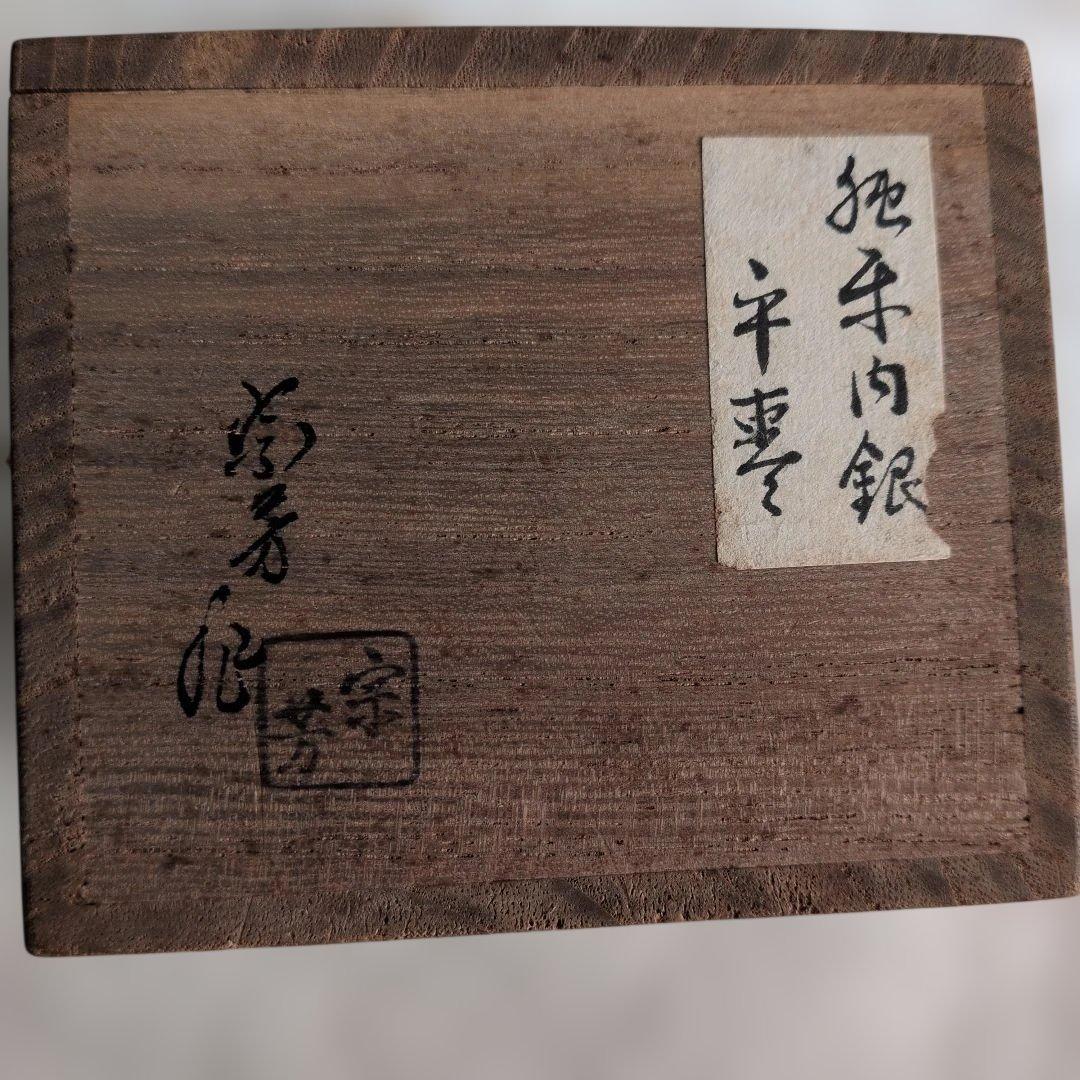 内銀
平棗
宗芳作
宗芳